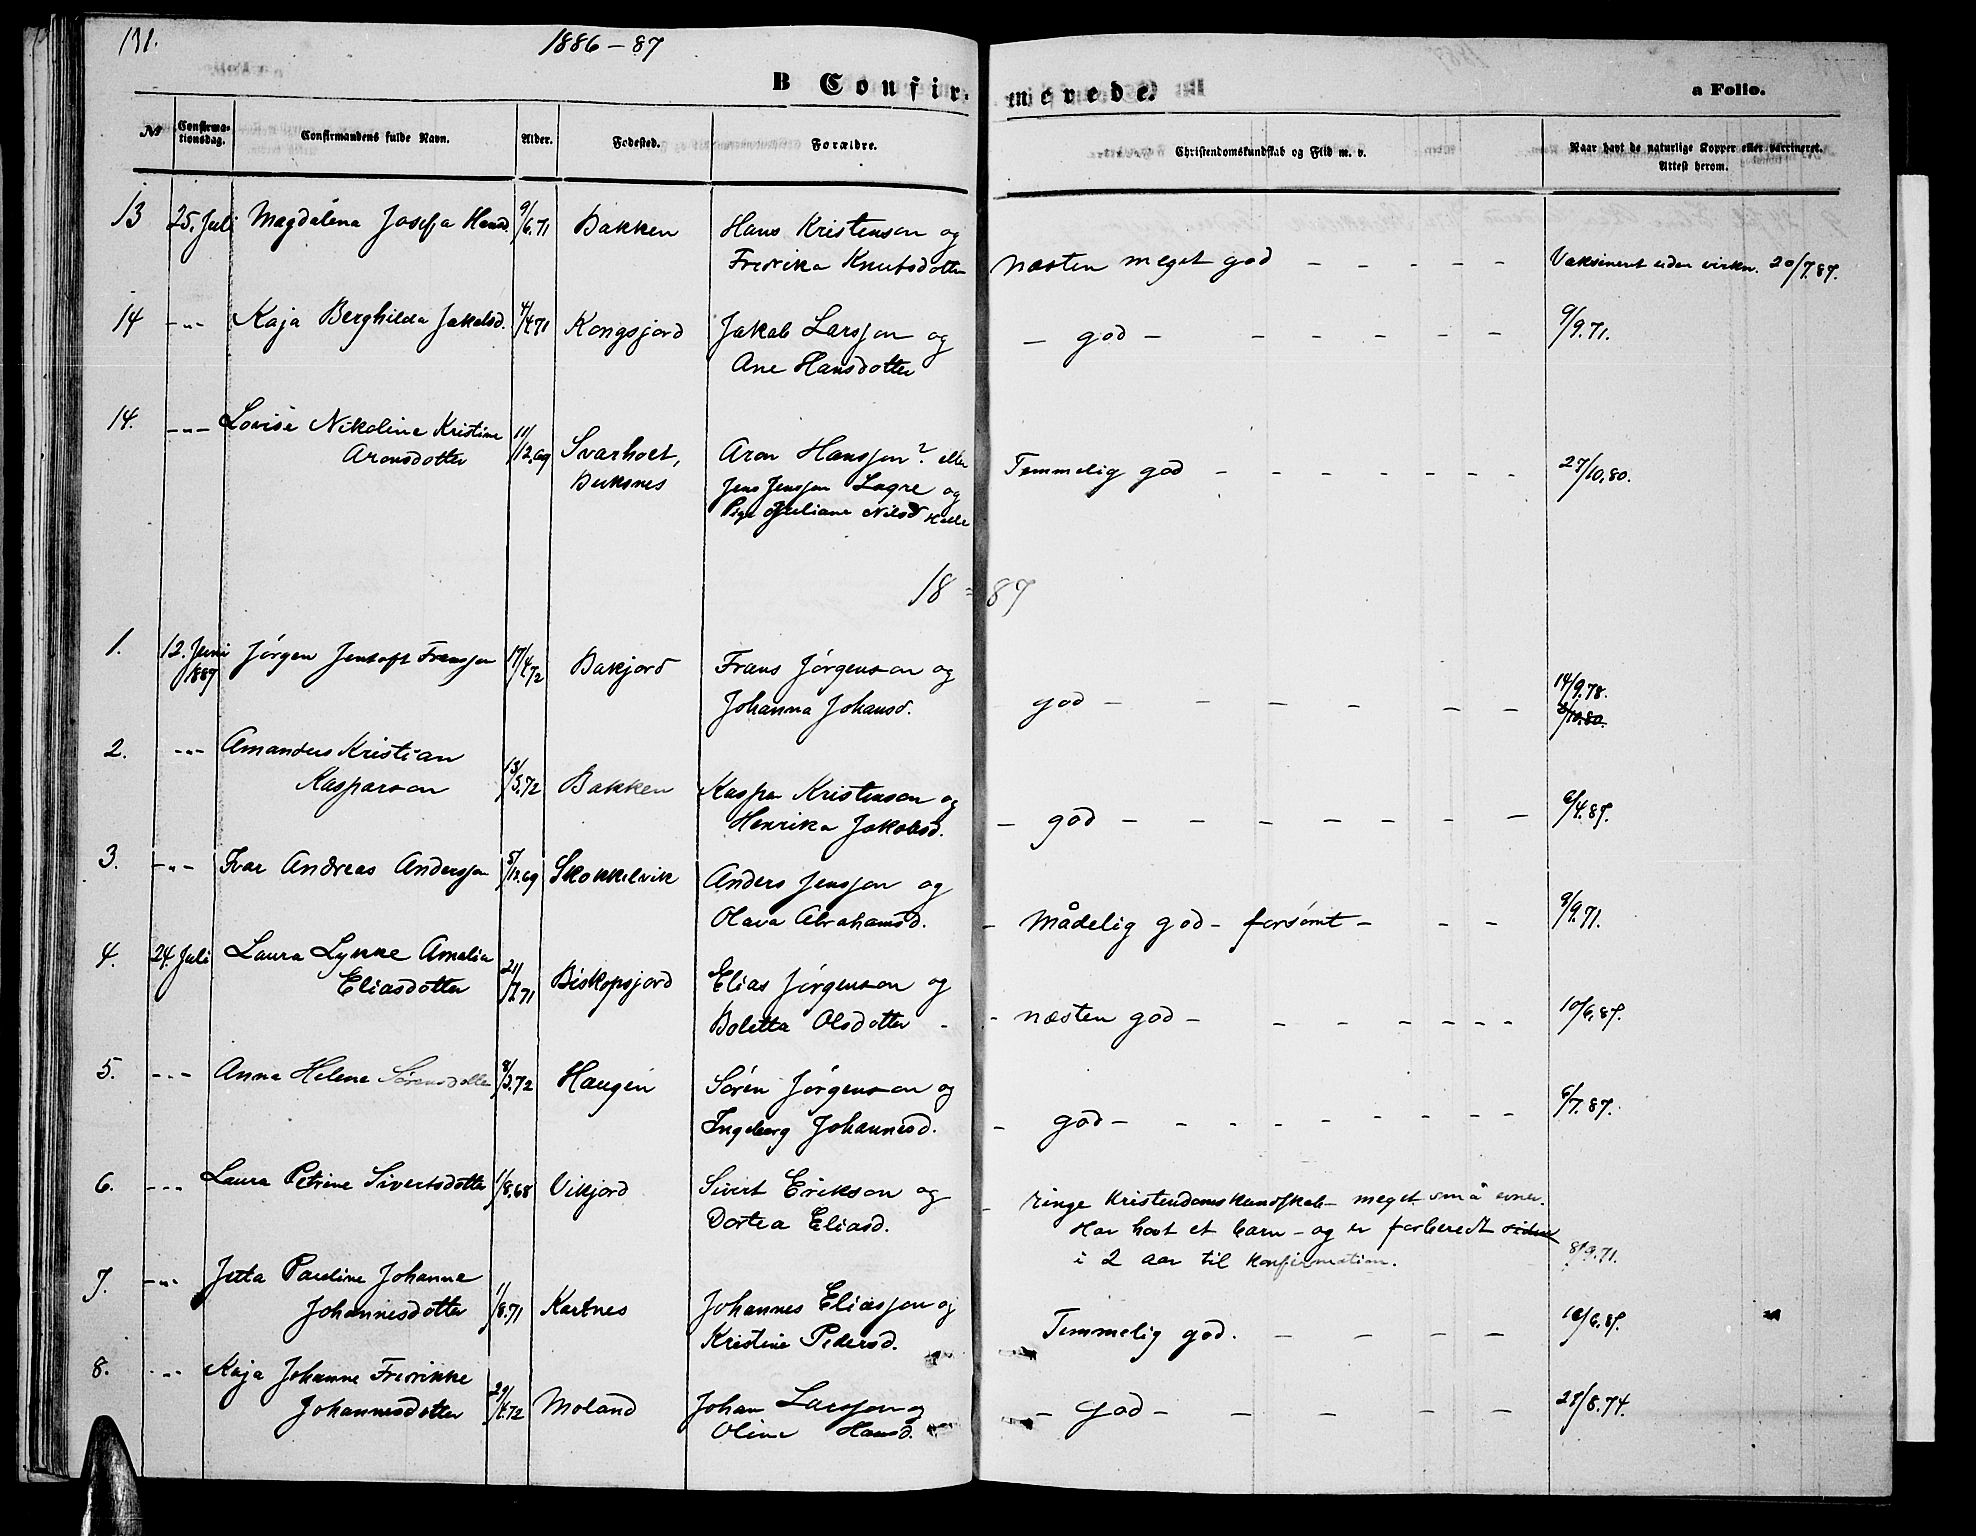 131.
1886-87
B Confir-
merede.
a Folio.
№
Confirma-
tionsdag.
Confirmandens fulde Navn.
Alder.
Fødested.
Forældre.
Christendomskundskab og Flid m. v.
Naar havt de naturlige Kopper eller vaccineret.
Attest herom.
13 25. Juli Magdalena Josefa Hansd. 9/6.71 Bakken Hans Kristenson og
Fredrika Knutsdotter næsten meget god - - - - - Vaksinert uden virkn. 20/7.87.
14 -"- Kaja Berghilda Jakobsd. 4/4.71 Kongsjord Jakob Larsson og - god - - - - - - 9/9.71.
Ane Hansdotter
14. -"- Lovise Nikoline Kristine
Aronsdotter 11/12.69 Svarholt, Aron Hansson? eller Temmelig god - - - - - - 27/10.80.
Buksnes Jens Jensson Lagre og
Pige Juliane Nilsd
18 = 87
1. 12. Juni
1887 Jørgen Jentoft Fransson 17/4.72 Bakjord Frans Jørgenson og
Johanna Johansd. god - - - - - 14/9.78.
3/10.80.
2. -"- Amandus Kristian
Kasparson 13/3.72 Bakken Kaspar Kristenson og
Henrika Jakobsd. - god - - - - - - - 6/4.87.
3. -"- Ivar Andreas Andersson 5/12.69 Skokkelvik Anders Jensson og
Olava Abrahamsd. - Mådelig god - forsømt - - - 9/9.71.
4. 24. Juli Laura Lykke Amalia
Eliasdotter 21/7.71 Biskopsjord Elias Jørgenson og
Boletta Olsdotter - - næsten god - - - - - - - 10/6.87.
5. -"- Anna Helene Sørensdotter 8/3.72 Haugen Søren Jørgenson og
Ingeborg Johannesd. - god - - - - - - - - 6/7.87.
6. -"- Laura Petrine Sivertsdotter 1/8.68 Vikjord Sivert Erikson og
Dortea Eliasd. - ringe Kristendomskundskab - meget små evner.
Har havt et barn - og er forberedt siden
i 2 aar til konfirmation. 8/9.71.
7. -"- Jitta Pauline Johanna
Johannesdotter 1/8.71 Kartnes Johannes Eliasson og
Kristine Pedersd. Temmelig god. - - - - 10/6.87.
8. -"- Kaja Johanne Fredrikke
Johannesdotter 29/4.72 Moland Johan Larsson og
Oline Hansd. - God - - - - - 28/8.74.